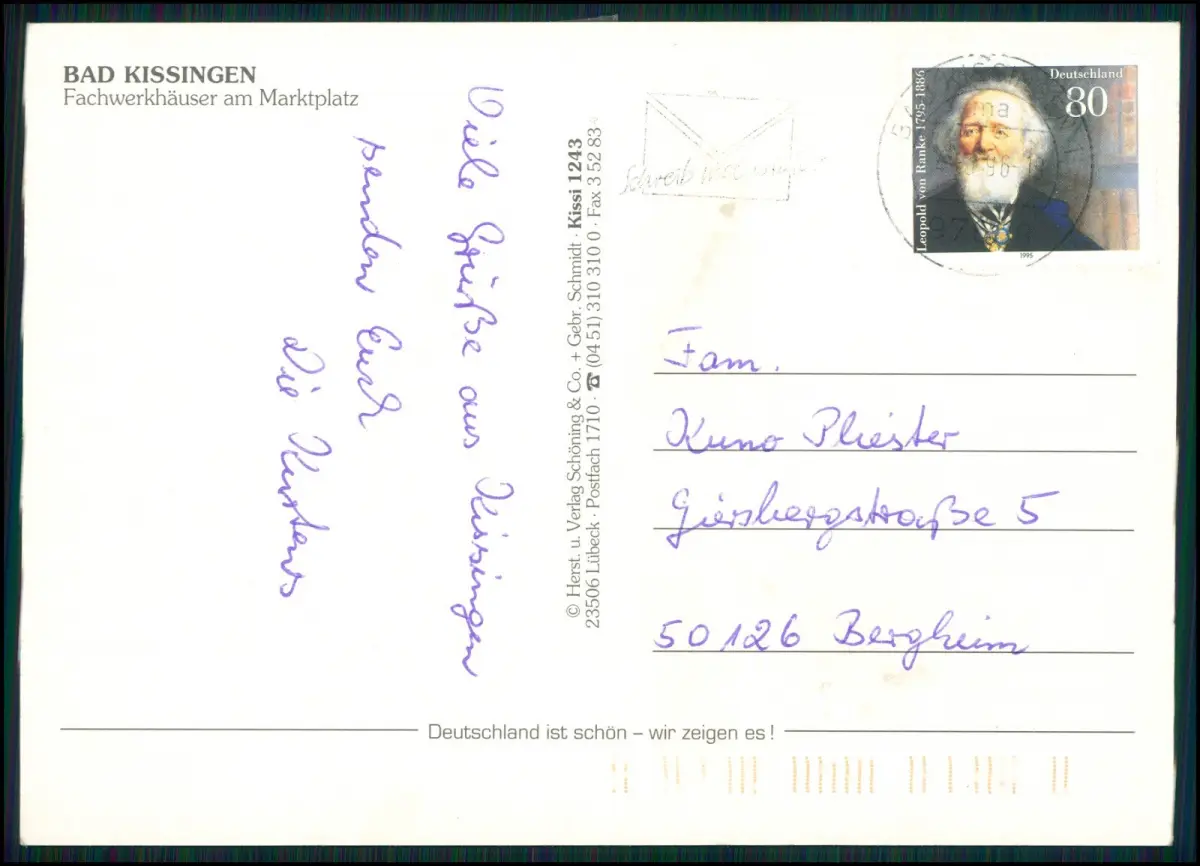 BAD KISSINGEN
Fachwerkhäuser am Marktplatz
Viele Grüße aus Kissingen
senden Euch
Die Kerstens
© Herst. u. Verlag Schöning & Co. + Gebr. Schmidt · Kissi 1243
23506 Lübeck · Postfach 1710 · ☎ (04 51) 310 310 0 · Fax 3 52 83
Schreib
Deutschland
80
Leopold von Ranke 1795-1886
1995
Fam.
Kuno Pliester
Giersbergstraße 5
50126 Bergheim
Deutschland ist schön – wir zeigen es!